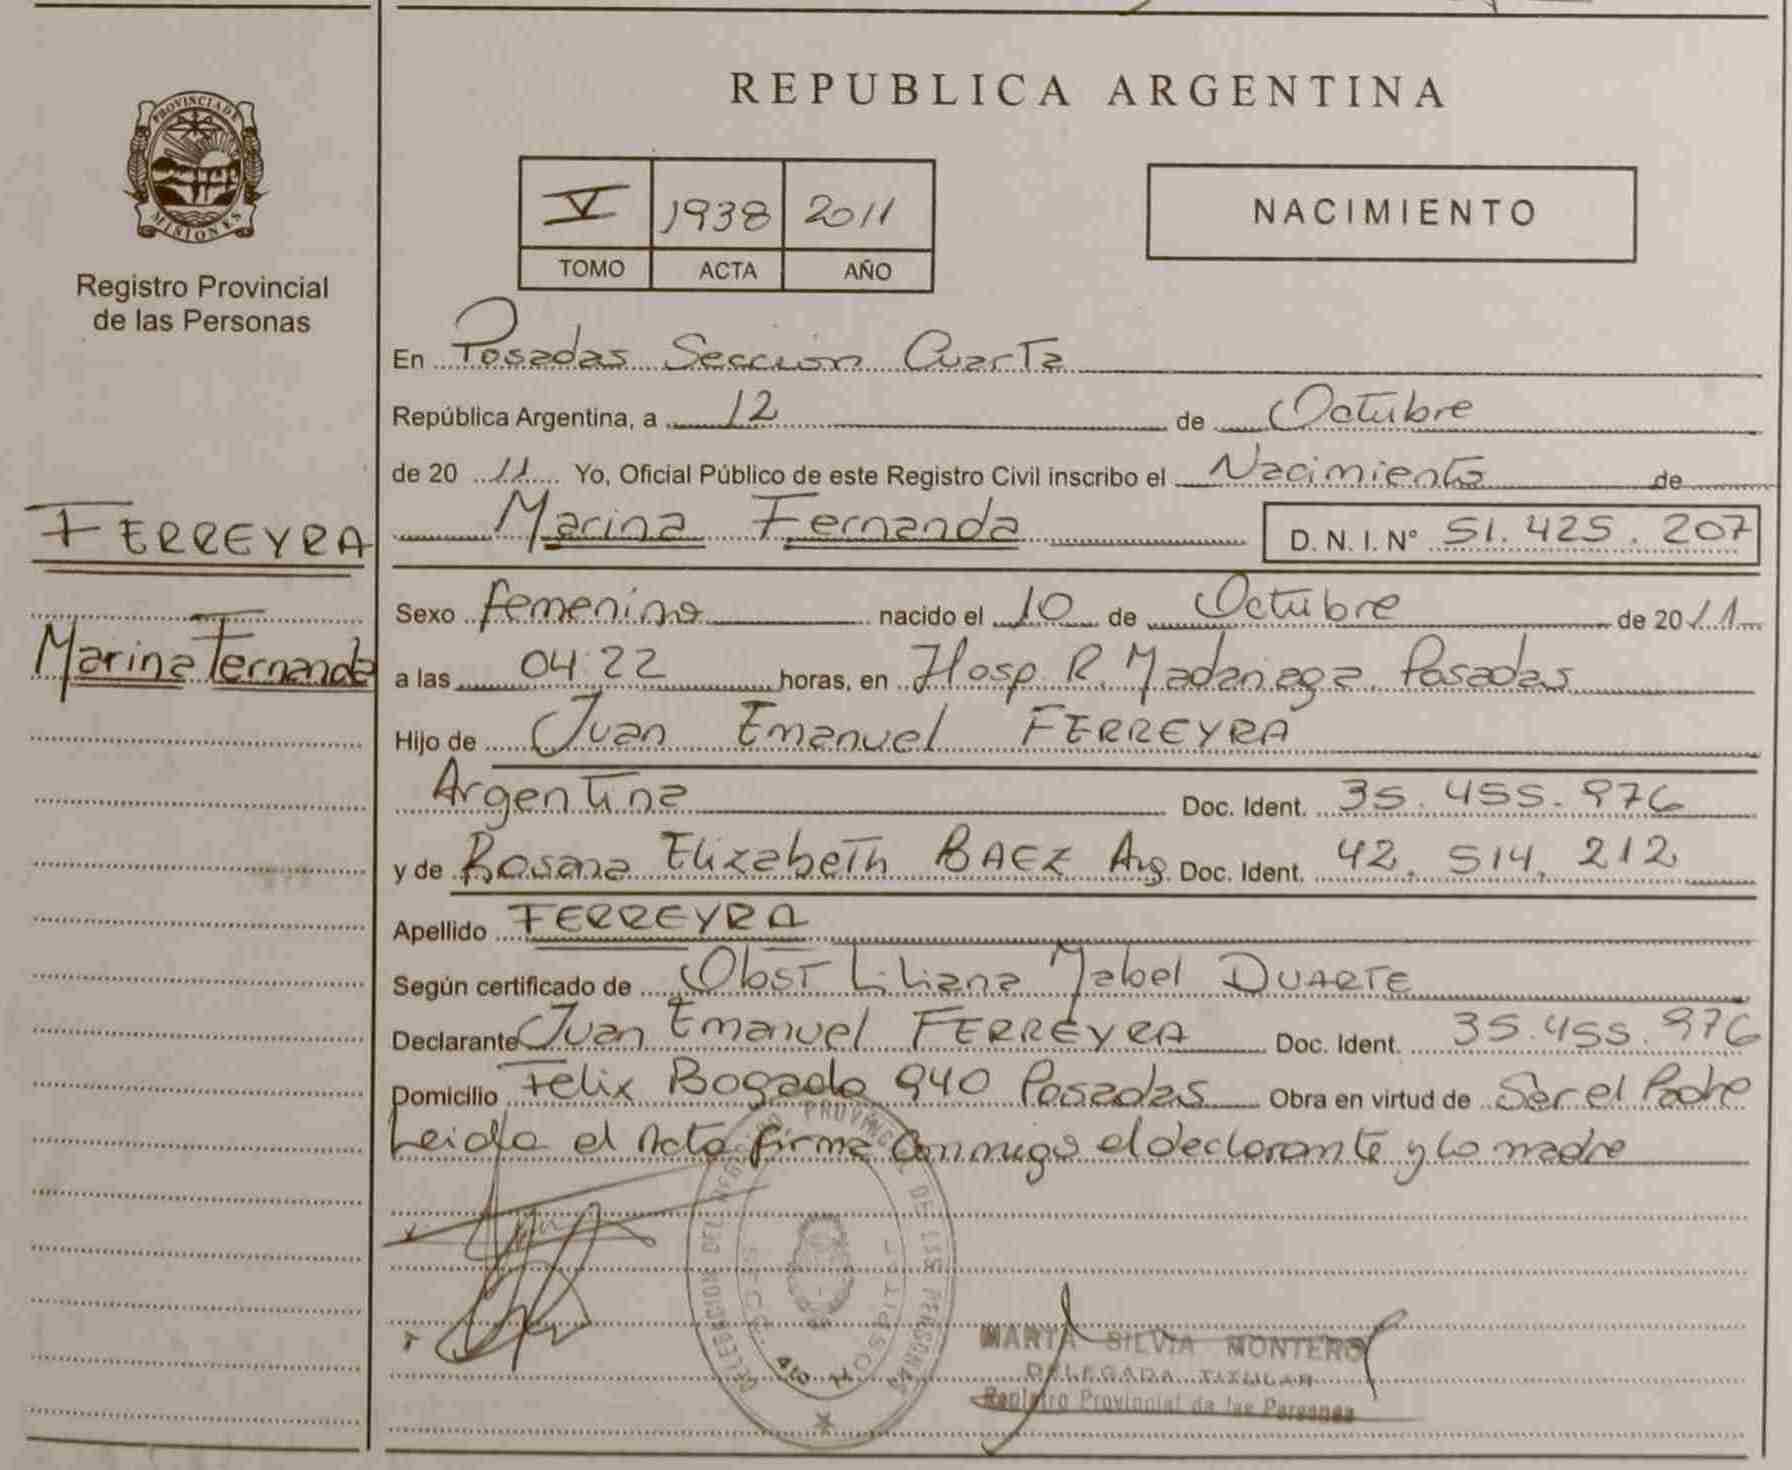 PROVINCIA DE
MISIONES
Registro Provincial
de las Personas
FERREYRA
Marina Fernanda
REPUBLICA ARGENTINA
V 1938 2011
TOMO ACTA AÑO
NACIMIENTO
En Posadas Seccion Cuarta
República Argentina, a 12 de Octubre
de 20 11 Yo, Oficial Público de este Registro Civil inscribo el Nacimiento de
Marina Fernanda D.N.I. Nº 51.425.207
Sexo femenino nacido el 10 de Octubre de 2011
a las 04:22 horas, en Hosp R. Madariaga Posadas
Hijo de Juan Emanuel FERREYRA
Argentina Doc. Ident. 35.455.976
y de Rosana Elizabeth BAEZ Arg Doc. Ident. 42.514.212
Apellido FERREYRA
Según certificado de Obst Liliana Mabel DUARTE
Declarante Juan Emanuel FERREYRA Doc. Ident. 35.455.976
Domicilio Felix Bogado 940 Posadas Obra en virtud de Ser el Padre
Leida el Acta firma conmigo el declarante y la madre
MARTA SILVIA MONTERO
DELEGADA TITULAR
Registro Provincial de las Personas